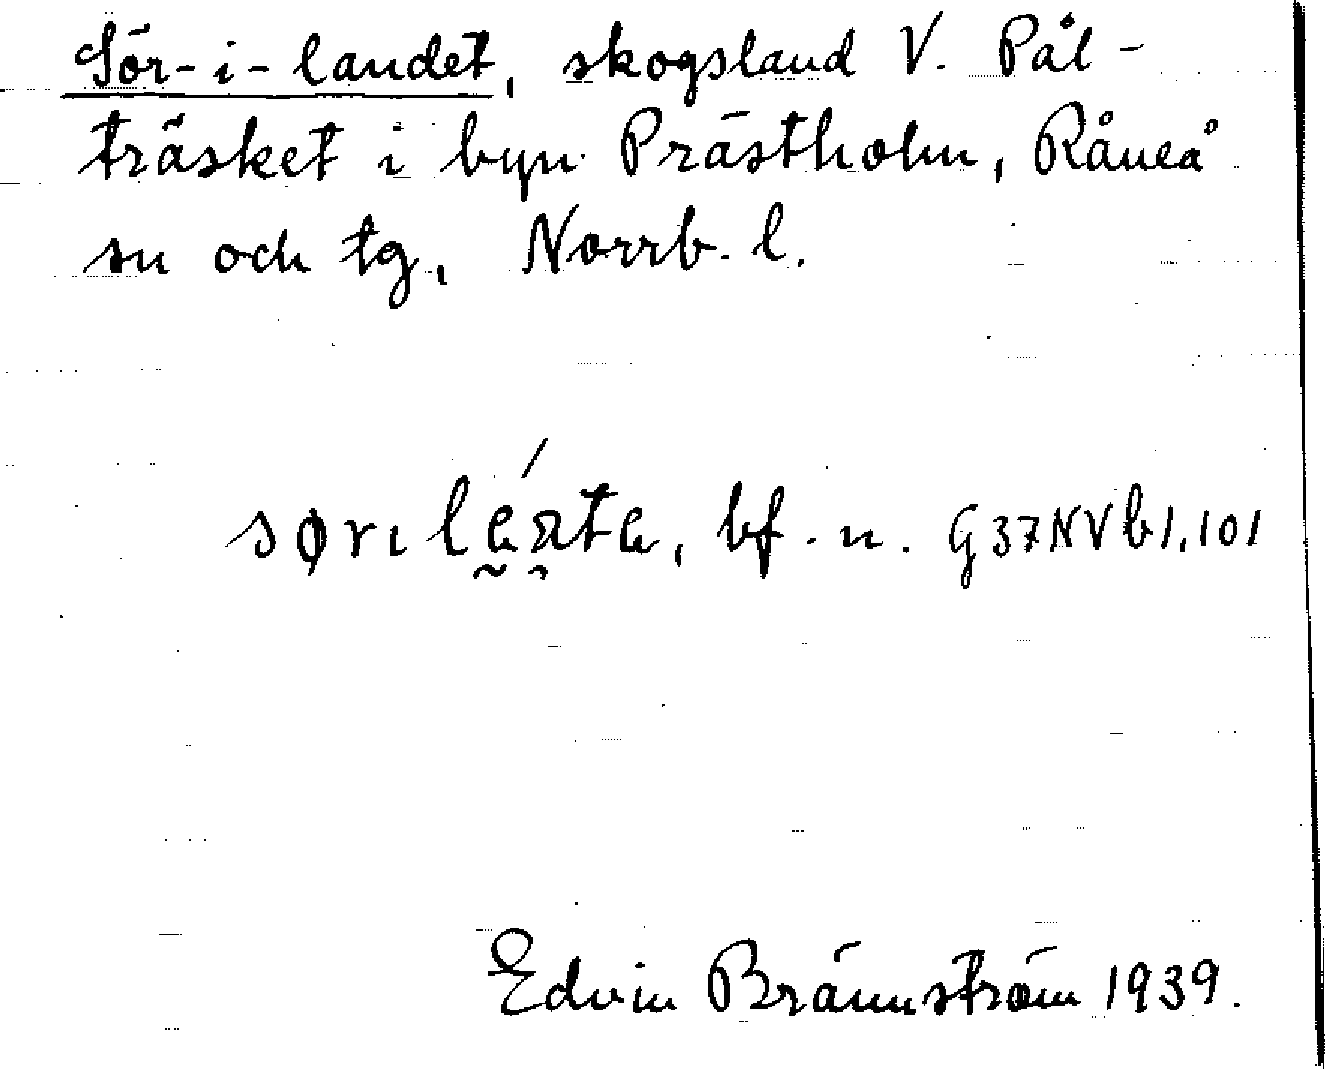 Sör-i-landet, skogsland V. Pål-
träsket i byn Prästholm, Råneå
sn och tg, Norrb. l.
bf. n. G37NVb1,101
Edvin Brännström 1939.